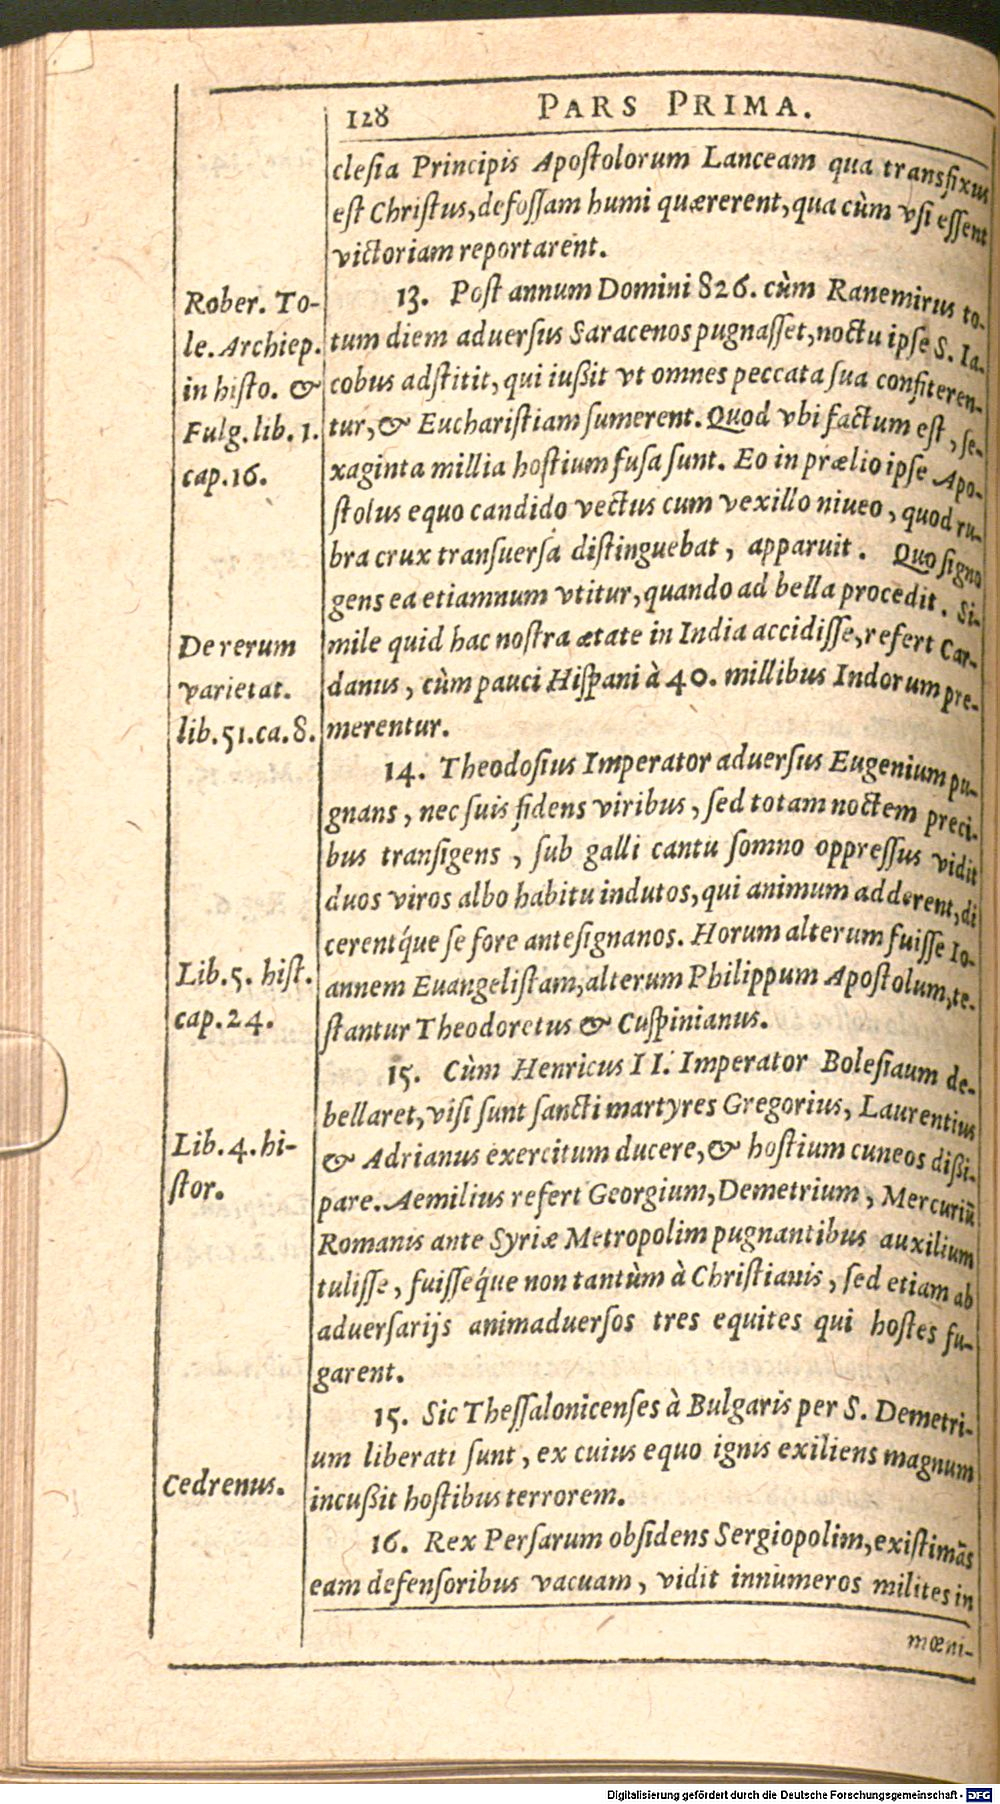 128 PARS PRIMA.
clesia Principis Apostolorum Lanceam qua transfixus
est Christus, defossam humi quærerent, qua cùm vsi essent
victoriam reportarent.
13. Post annum Domini 826. cùm Ranemirus to-
tum diem aduersus Saracenos pugnasset, noctu ipse S. Ia-
cobus adstitit, qui iußit vt omnes peccata sua confiteren-
tur, & Eucharistiam sumerent. Quod vbi factum est, se-
xaginta millia hostium fusa sunt. Eo in prælio ipse Apo-
stolus equo candido vectus cum vexillo niueo, quod ru-
bra crux transuersa distinguebat, apparuit. Quo signo
gens ea etiamnum vtitur, quando ad bella procedit. Si-
mile quid hac nostra ætate in India accidisse, refert Car-
danus, cùm pauci Hispani à 40. millibus Indorum pre-
merentur.
14. Theodosius Imperator aduersus Eugenium pu-
gnans, nec suis fidens viribus, sed totam noctem preci-
bus transigens, sub galli cantu somno oppressus vidit
duos viros albo habitu indutos, qui animum adderent, di
cerentq́ue se fore antesignanos. Horum alterum fuisse Io-
annem Euangelistam, alterum Philippum Apostolum, te-
stantur Theodoretus & Cuspinianus.
15. Cùm Henricus II. Imperator Bolesiaum de-
bellaret, visi sunt sancti martyres Gregorius, Laurentius
& Adrianus exercitum ducere, & hostium cuneos dißi-
pare. Aemilius refert Georgium, Demetrium, Mercuriū
Romanis ante Syriæ Metropolim pugnantibus auxilium
tulisse, fuisseq́ue non tantùm à Christianis, sed etiam ab
aduersarijs animaduersos tres equites qui hostes fu-
garent.
15. Sic Thessalonicenses à Bulgaris per S. Demetri-
um liberati sunt, ex cuius equo ignis exiliens magnum
incußit hostibus terrorem.
16. Rex Persarum obsidens Sergiopolim, existimās
eam defensoribus vacuam, vidit innumeros milites in
mœni-
Rober. To-
le. Archiep.
in histo. &
Fulg. lib. 1.
cap. 16.
De rerum
varietat.
lib. 51. ca. 8.
Lib. 5. hist.
cap. 24.
Lib. 4. hi-
stor.
Cedrenus.
Digitalisierung gefördert durch die Deutsche Forschungsgemeinschaft - DFG